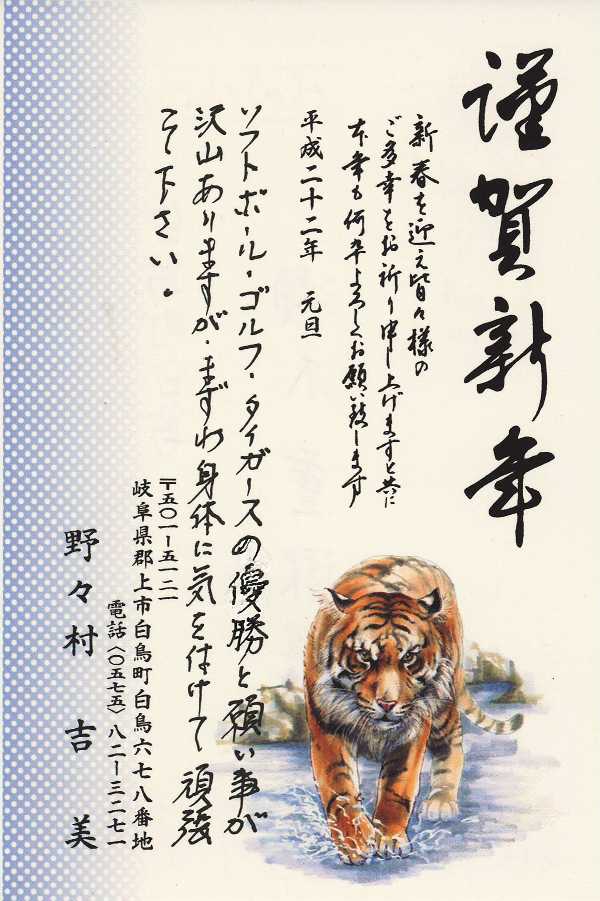 謹賀新年
新春を迎え皆々様の
ご多幸をお祈り申し上げますと共に
本年も何卒よろしくお願い致します
平成二十二年　元旦
ソフトボール・ゴルフ・タイガースの優勝と願い事が
沢山ありますが・まずわ身体に気を付けて頑張
って下さい。
〒五〇一ー五一二一
岐阜県郡上市白鳥町白鳥六七八番地
電話〈〇五七五〉八二ー三二七一
野々村　吉美